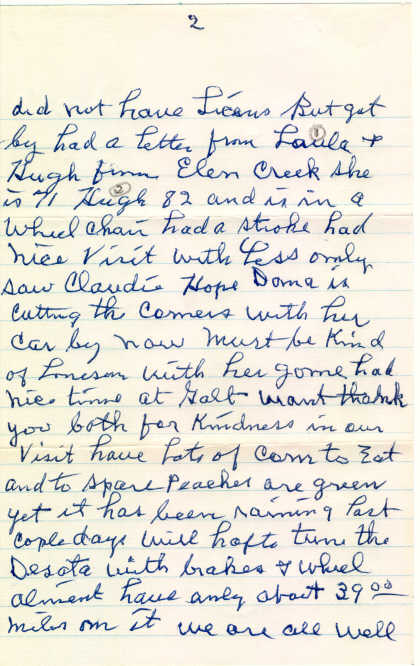 2
did not have Licens But got
by had a letter from Laula &
1
Hugh from Elen Creek she
2
is 71 Hugh 82 and is in a
Wheel chair had a stroke had
nice Visit with Less only
saw Claudie Hope Dona is
cutting the Corners with her
Car by now Must be Kind
of Lonesom with her gone had
nice time at Galt want thank
you both for Kindness in our
Visit have Lots of Corn to Eat
and to spare Peaches are green
yet it has been raining Last
cople days will hafto tune the
Desota with brakes & wheel
alment have only about 3900
miles on it we are all well